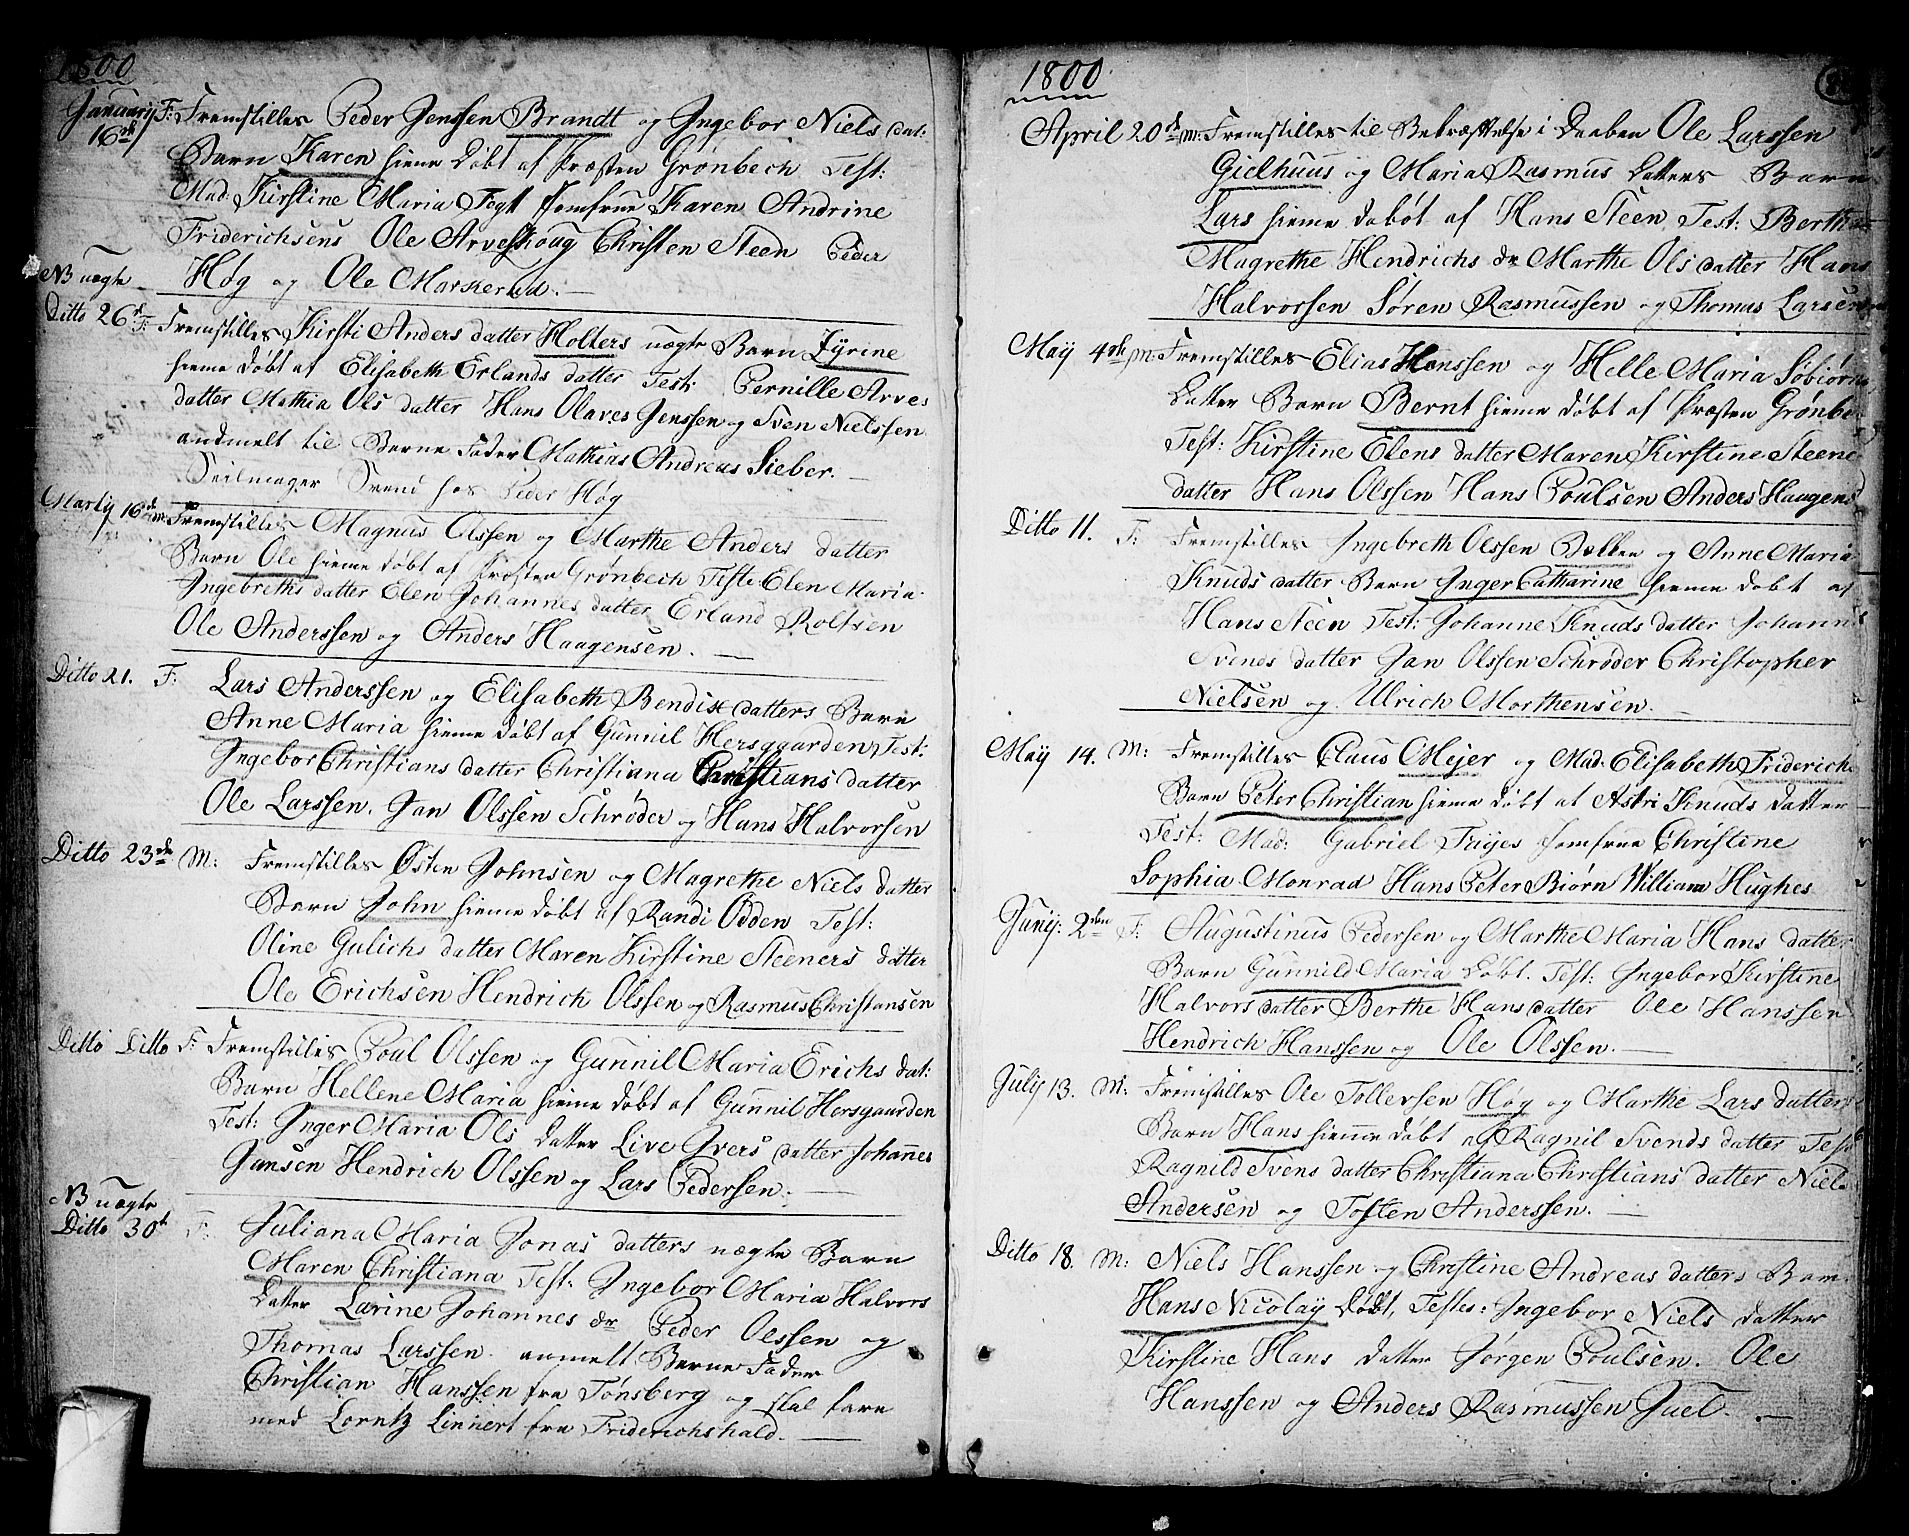 1800
Januarij 16de F: Fremstilles Peder Jenssen Brandt og Ingebor Niels dat:
Barn Karen hieme døbt af Præsten Grønbech Test:
Mad: Kirstine Maria Fegt Jomfrue Karen Andrine
Friderichsens Ole Arveskoug Christen Steen Peder
Høg og Ole Marskerud.
NB uægte
Ditto 26 F: Fremstilles Kirsti Anders datter Holters uægte Barn Zyrine
hieme døbt af Elisabeth Erlands datter Test: Pernille Arves
datter Mathia Ols datter Hans Olaves Jenssen og Sven Nielssen
andmelt til Barne Fader Mathias Andreas Sieber.
Seilmager Svend hos Peder Høg
Martij 16de M: Fremstilles Magnus Olssen og Marthe Anders datter
Barn Ole hieme døbt af Præsten Grønbech Teste: Elen Maria
Ingebreths datter Elen Johannes datter Erland Rolfsen
Ole Anderssen og Anders Haagensen.
Ditto 21. F: Lars Anderssen og Elisabeth Bendix datters Barn
Anne Maria hieme døbt af Gunnil Hersgaarden, Test:
Ingebor Christians datter Christiana Christians datter
Ole Larssen. Jan Olssen Schrøder og Hans Halvorsen
Ditto 23de M: Fremstilles Østen Johnsen og Magrethe Niels datter
Barn John hieme døbt af Randi Odden Test:
Oline Gulichs datter Maren Kirstine Steeners datter
Ole Erichsen Hendrich Olssen og Rasmus Christansen
Ditto Ditto F: Fremstilles Poul Olssen og Gunnil Maria Erichs dat:
Barn Hellene Maria hieme døbt af Gunnil Hersgaarden
Test: Inger Maria Ols datter Live Ivers datter Johannes
Jansen Hendrich Olssen og Lars Pedersen.
NB uægte
Ditto 30t F: Juliana Maria Jonas datters uægte Barn
Maren Christiana Test: Ingebor Maria Halvors
datter Larine Johannes dr Peder Olssen og
Thomas Larssen. anmelt Barne Fader
Christian Hanssen fra Tønsberg og skal fare
med Lorntz Linnert fra Friderichshald.
1800
April 20de M: Fremstilles til Bekræftelse i Daaben Ole Larssen
Gielhuus og Maria Rasmus datters Barn
Lars hieme døbt af Hans Steen Test: Berthe
Magrethe Hendrichs dr Marthe Ols datter Hans
Halvorssen Søren Rasmussen og Thomas Larsen
Maÿ 4de M: Fremstilles Elias Hanssen og Helle Maria Søbiørns
datter Barn Bernt hieme døbt af Præsten Grønbe
Test: Kirstine Elens datter Maren Kirstine Steene
datter Hans Olssen Hans Poulsen Anders Haagens
Ditto 11. F: Fremstilles Ingebreth Olssen Bakken og Anne Maria
Knuds datter Barn Inger Catharine hieme døbt af
Hans Steen Test: Johanne Knuds datter Johann
Svends datter Jan Olssen Schrøder Christopher
Nielsen og Ulrich Morthensen.
Maÿ 14. M: Fremstilles Claus Mejer og Mad. Elisabeth Friderich
Barn Peter Christian hieme døbt af Astri Knuds datter
Test: Mad: Gabriel Friges Jomfrue Christine
Sophia Monrad Hans Peter Biørn William Hughes
Junij: 2den F: Augustinus Pedersen og Marthe Maria Hans datter
Barn Gunnild Maria døbt. Test: Ingebor Kirstine
Halvors datter Berthe Hans datter Ole Hanssen
Hendrich Hanssen og Ole Olssen.
Julij 13. M: Fremstilles Ole Tollevsen Høg og Marthe Lars datter
Barn Hans hieme døbt af Ragnil Svends datter Test
Ragnild Svens datter Christiana Christians datter Niels
Andersen og Tosten Anderssen.
Ditto 18. M: Niels Hanssen og Christine Andreas datters Barn
Hans Nicolaÿ døbt, Testes: Ingebor Niels datter
Kirstine Hans datter Jørgen Poulsen. Ole
Hanssen og Anders Rasmussen Juel.